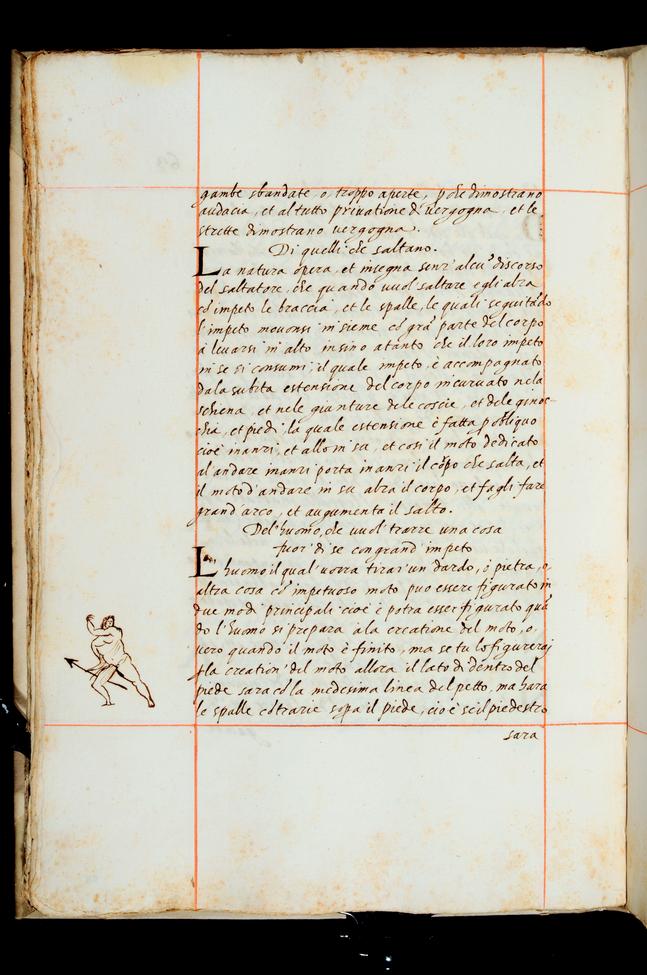 gambe sbandate, o, troppo aperte, p che dimostrano
audacia, et al tutto privatione di vergogna, et le
strette dimostrano vergogna.
Di quelli che saltano.
La natura opera, et insegna senz' alcu discorso
del saltatore, che quando vuol saltare egli alza
cō impeto le braccia, et le spalle, le quali seguitādo
l'impeto movonsi insieme cō grā parte del corpo
à levarsi in alto insino atanto che il loro impeto
in se si consumi, il quale impeto, è accompagnato
dala subita estensione del corpo incurvato nela
schiena, et nele gianture dele coscie, et dele ginoc-
chia, et piedi, la quale estensione è fatta p obliquo
cioè inanzi, et allo in su, et cosi il moto dedicato
al andare inanzi porta inanzi il cōpo che salta, et
il moto d'andare in su alza il corpo, et fagli fare
grand' arco, et augumenta il salto.
Del huomo, che vuol trarre una cosa
fuor' di se con grand impeto
L'huomo il qual vorra tirar' un dardo, ò pietra, o
altra cosa cō impetuoso moto puo essere figurato in
due modi principali cioè è potra esser figurato quā
do l'huomo si prepara ala creatione del moto, o,
vero quando il moto è finito, ma se tu lo figurerai
p la creation' del moto allora il lato di dentro del
piede sara cō la medesima linea del petto, ma hara
le spalle cōtrarie sopa il piede, cio è se il piè destro
sara